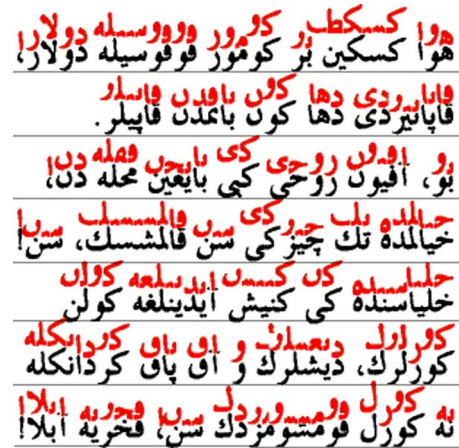 هوا كسكين بر كومور قوقوسيله دولار،
قاپانيردى دها كون باتمدن قاپيلر.
بو، آفيون روحى كبى بايغين محله دن،
خيالمده تك چيزكى سن قالمشسك، سن!
خلياسنده كى كنيش آيدينلغه كولن
كوزلرك، ديشلرك و آق پاق كردانكله
نه كوزل قومشومزدك سن، فخريه آبلا!